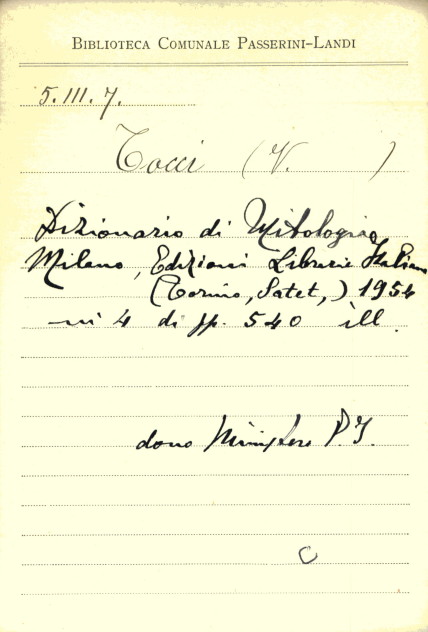 BIBLIOTECA COMUNALE PASSERINI-LANDI
5.III.7.
Tocci (V. )
Dizionario di Mitologia
Milano, Edizioni Librarie Italiane
(Torino, Satet,) 1954
in 4 di pp. 540 ill.
dono Ministero P.I.
C